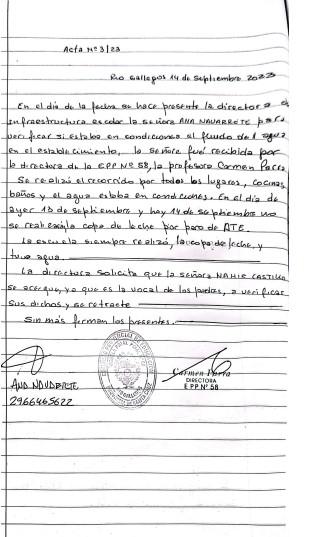 Acta Nº 3/23
Rio Gallegos 14 de Septiembre 2023
En el día de la fecha se hace presente la directora de
infraestructura escolar la señora ANA NAVARRETE para
verificar si estaba en condiciones el fluido de agua
en el establecimiento, la señora fué recibida por
la directora de la EPP Nº 58, la profesora Carmen Parra
Se realizó el recorrido por todos los lugares, cocinas,
baños y el agua estaba en condiciones. En el día de
ayer 13 de Septiembre y hoy 14 de septiembre no
se realizó la copa de leche por paro de ATE.
La escuela siempre realizó, la copa de leche, y
tuvo agua.
La directora solicita que la señora NAHIR CASTILLO
se acerque, ya que es la vocal de los padres, a verificar
sus dichos y se retracte
Sin más firman los presentes.
ANA NAVARRETE
2966465622
Carmen Parra
DIRECTORA
E P P Nº 58